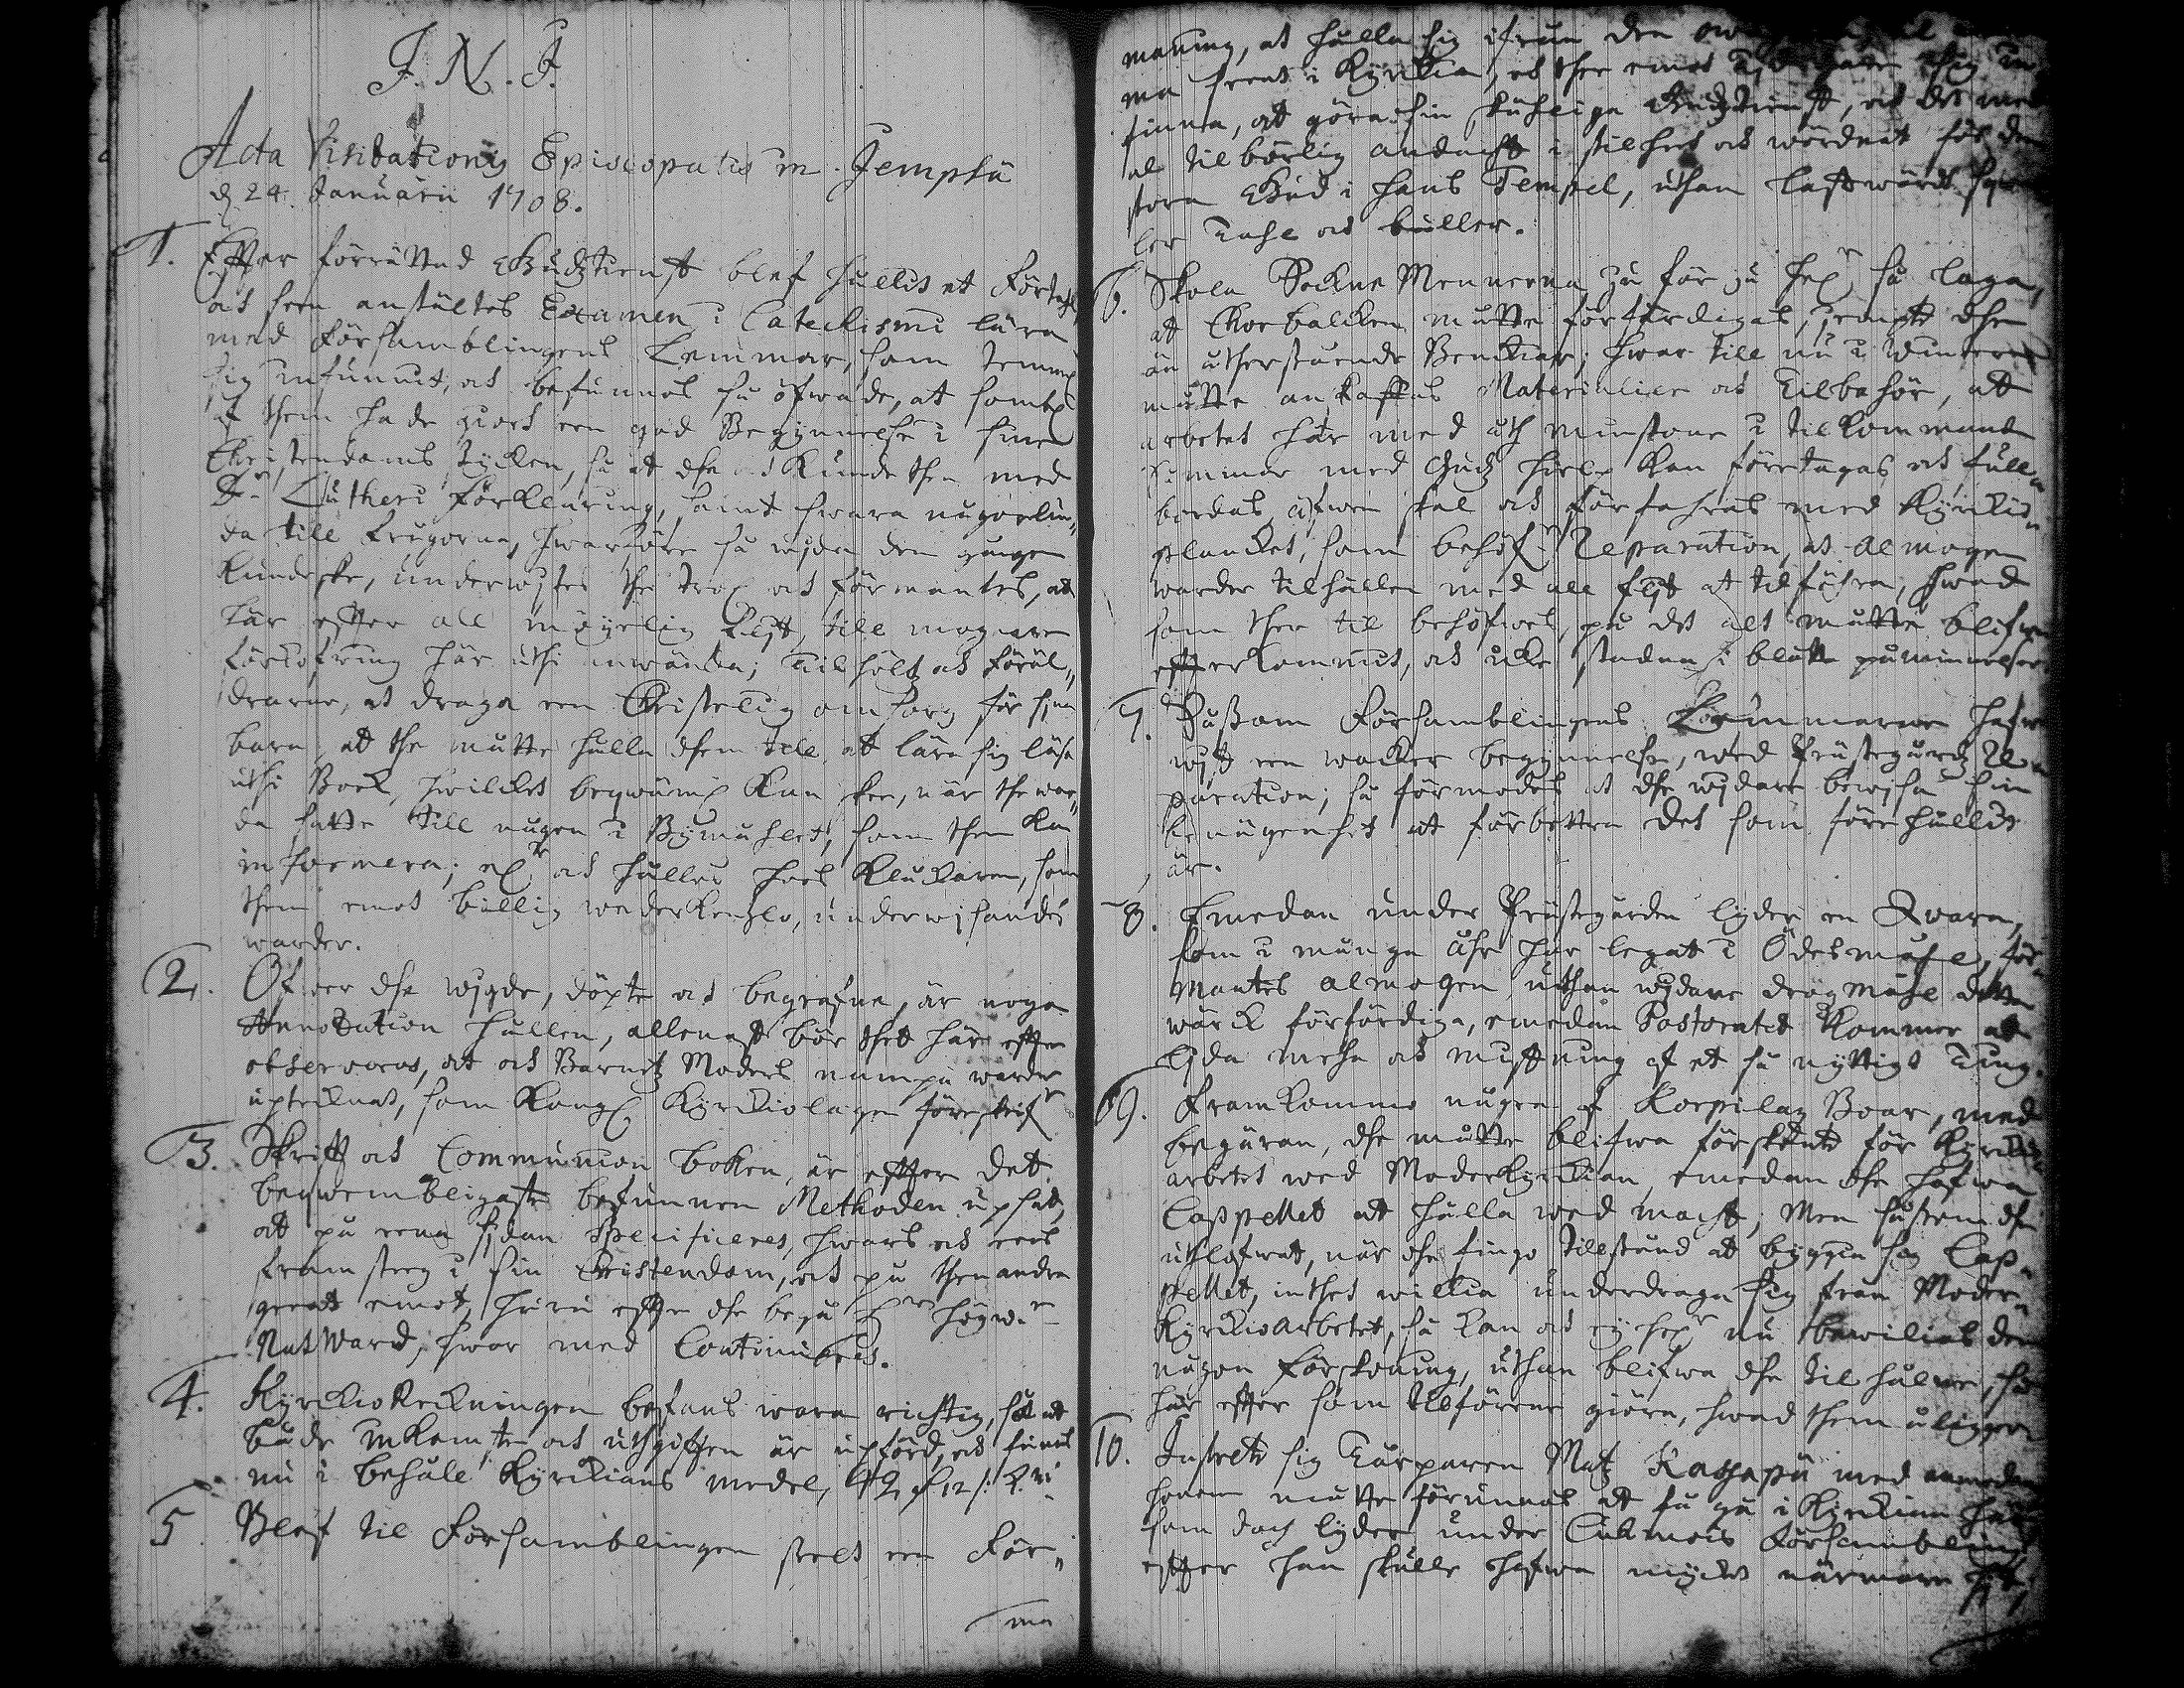 J. N. J.
Acta Visitationis Episcopalis in Jempsä
d. 24. Januarii 1708.
1. Effter förrättad Gudztienst blef hållit et Förtahl,
och seen anstältes Examen i Catechismi lära
med Församblingens Lemmar, som temmel.
sig infunnit, och befunnos så öfwade, at somblige
af them hade giort een god Begynnelse i sine
Christendoms stycken, så at dhe och kunde them med
D:r Lutheri Förklaring, samt swara någorlun„
da till Frågorna, hwarföre så wijda den gången
kunde skee, underwistes the trol. och förmantes, at
här effter all möyelig Flijt, till mognare
förkofring här uthi anwända; Tilhölts och Föräl„
drarne, at draga een Christelig omsorg för sina
barn, at the måtte hålla them till at lära sig läsa
uthi Book, hwilcket beqwäml. kan skee, när the war„
da satte till någon i Bymåhlet, som them kan
informera; el:r och hålles hoos Kluckaren, som
them emot billig wederkenzlo, underwisandes
warder.
2. Öfwer dhe wigde, döpte och begrafne, är noga
Annotation hållen, allenast bör thet här effter
observeras, at och Barnetz Moders nampn warder
uptecknat, som Kongl. Kyrckiolagen förskrif:r
3. Skrifft och Communion boken, är effter det
beqwembligaste befunnen Methoden upsatt,
at på eena sijdan Specificeres, hwars och eens
framsteg i sin Christendom, och på then andra
geent emot, huru offta dhe begå H:rs högw:e
Natward, hwar med Continueras.
4. Kyrckiorekningen befans wara richtig, så at
både inkomsten och uthgifften är upförd, och finnes
nu i behåll Kyrckians medel,
5 Blef til Församblingen steelt een För„
ma
maning, at hålla sig ifrån den
ma frent i Kyrckian, och ther emot
sinna, at göra sin skyldige Gudztienst, och det med
al tilbörlig andacht i stilhet och wördnat för den
stora Gud i hans Tempel, uthan lastwärdt
ler Tahl och buller.
6. Skola Sockne Mennerna ju för ju hel:r så laga,
at Chorbalcken måtte förfärdigas, jempte dhe
än utherstående Benckiar; hwar till nu i Winter
måtte anskaffas Materialier och Tilbehör, at
arbetet här med åth minstone i tilkommande
Sommar med Gudz hielp kan företagas och full„
bordas, äfwen skal och förfahras med Kyrckio„
plancket, som behöf:r Reparation, och Almogen
warder tilhållen med all flijt at tilföhra, hwad
som ther til behöfwes, på det alt måtte blifwa
effterkommit, och icke stadna i blotta påminnelser
7. Såssom Församblingens Lemmarne hafwa
wijst een wacker begynnelse, wed Prästegårdz Re„
paration; så förmodes at dhe wijdare bewisa sin
benägenhet at förbettra det som förehållit
är.
8. Emedan under Prästegården lyder en Qvarn,
som i många Åhr har legat i Ödesmåhl, för„
mantes Almogen uthan wijdare drögmåhl detta
wärck förfärdiga, emedan Pastoratet kommer at
lijda mehn och mistning af et så nyttigt Ting.
9. Framkommo någre af Korpilax Boar, med
begäran, dhe måtte blifwa förskonte för Kyrckio
arbetet wed Moderkyrckian, emedan dhe hafwa
Cappellet at hålla wed macht; Men såsom dhe
uthlofwat, när dhe fingo tillstånd at byggia sig Cap„
pellet, inthet willia underdraga sig från Moder„
Kyrckioarbetet, så kan och ey hel:r nu bewilias dem
någon förskoning, uthan blifwa dhe tilhålne, så
här effter som tilförene giöra, hwad them åligger.
10. Instelte sig Torparen Matz Katzapä med anmodan
honom måtte förunnas at få gå i Kyrckian här
som doch lyder under Cuhmois Församblingh
effter han skulle hafwa myckit närmare hijt,